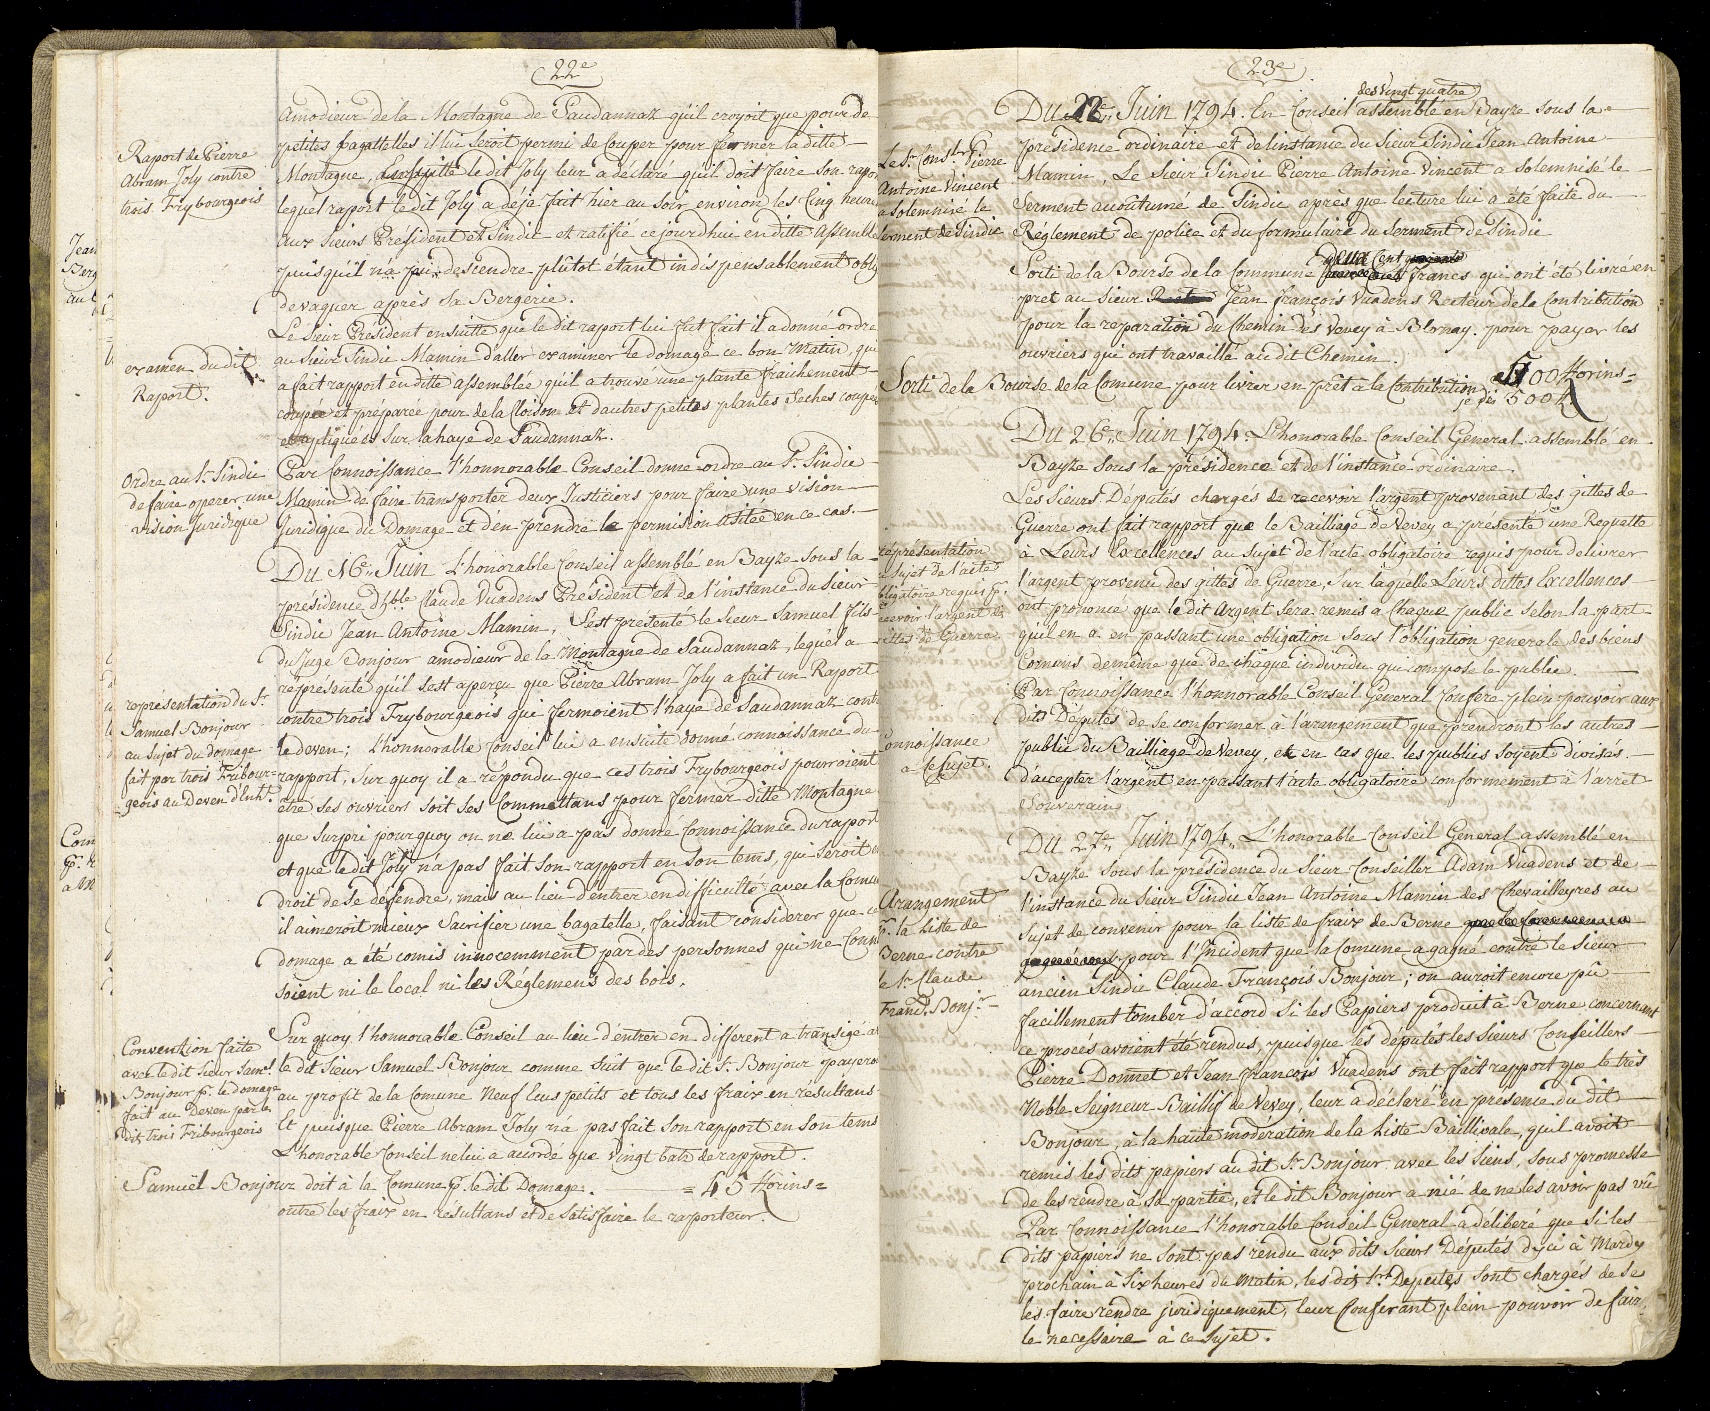 22e
Amodieur de la Montagne de Saudannaz qu'il croyoit que pour de
petites bagattelles il lui seroit permi de couper pour fermer la ditte
Raport de Pierre
Abram Joly contre
trois Frybourgeois
Montagne, Ensuitte le dit Joly leur a déclaré qu'il doit faire son
lequel raport le dit Joly a déjà fait hier au soir environ les Cinq heures
aux Sieurs Président et Sindic et ratifié ce jourdhui en ditte Assemblé
puisqu'il n'a pu descendre plûtot étant indispensablement
de vaquer après sa Bergerie.
Le Sieur Président ensuitte que le dit rapport lui fut fait il a donné ordre
au Sieur Sindic Mamin d'aller examiner le domage ce bon matin, qui
examen du dit
Raport.
a fait rapport en ditte assemblée qu'il a trouvé une plante fraichement
coupée et préparée pour de la Cloison et d'autres petites plantes seches coupées
et apliquées sur la haye de Saudannaz.
Ordre au Sr Sindic
de faire operer une
vision Juridique
Par Connoissance l'honnorable Conseil donne ordre au Sr Sindic
Mamin de faire transporter deux Justiciers pour faire une vision
Juridique du Domage et d'en prendre la permision usitée en ce cas.
Du 16e Juin L'honorable Conseil assemblé en Bayze sous la
présidence d'hble Claude Vuadens Président et de l'instance du Sieur
Sindic Jean Antoine Mamin. S'est présenté le Sieur Samuel fils
du Juge Bonjour amodieur de la Montagne de Saudannaz, lequel a
représenté qu'il s'est aperçu que Pierre Abram Joly a fait un Raport
représentation du Sr
Samuel Bonjour
au sujet du domage
fait par trois Fribour=
=geois au Deven
contre trois Frybourgeois qui fermoient l'haye de Saudannaz contre
le deven; L'honnorable Conseil lui a ensuite donné connoissance du
rapport, Sur quoy il a répondu que ces trois Frybourgeois pourroient
etre ses ouvriers soit ses Commettans pour fermer ditte Montagne
que surpri pourquoy on ne lui a pas donné Connoissance du raport
et que le dit Joly n'a pas fait son rapport en son tems, qui seroit en
droit de se défendre, mais au lieu d'entrer en difficulté avec la Comune
il aimeroit mieux Sacrifier une bagatelle, faisant considerer que ce
domage a été comis innocemment par des personnes qui ne
soient ni le local ni les Réglemens des bois.
Convention faite
avec le dit Sieur Saml
Bonjour pr. le domage
fait au Deven par les
dits trois Fribourgeois
Sur quoy l'honnorable Conseil au lieu d'entrer en different a transigé
le dit Sieur Samuel Bonjour comme suit que le dit Sr Bonjour payera
au profit de la Comune Neuf Ecus petits et tous les fraix en résultans
Et puisque Pierre Abram Joly n'a pas fait son rapport en son tems
L'honorable Conseil ne lui a acordé que vingt batz de rapport.
Samuël Bonjour doit à la Comune pr. le dit Domage. = 45 florins =
outre les fraix en resultans et de satisfaire le raporteur.
23e
des Vingt quatre
Du 22e Juin 1794. En Conseil assemblé en Bayze sous la
présidence ordinaire et de l'instance du Sieur Sindic Jean Antoine
Mamin, Le Sieur Sindic Pierre Antoine Vincent a solemnisé le
Le Sr Conslr Pierre
Antoine Vincent
a solemnisé le
serment de Sindic
Serment acoûtumé de Sindic après que lecture lui a été faite du
Réglement de police et du formulaire du serment de Sindic
Sorti de la Bourse de la Commune deux Cent francs qui ont été livré en
pret au Sieur Jean François Vuadens Recteur de la Contribution
pour la reparation du Chemin des Vevey à Blonay. pour payer les
ouvriers qui ont travaillé au dit Chemin.
Sorti de la Bourse de la Comune pour livrer en prêt a la Contribution 500 florins=
je dis 500
Du 26e Juin 1794. L'honorable Conseil General assemblé en
Bayze sous la présidence et de l'instance ordinaire.
Les Sieurs Députés chargés de recevoir l'argent provenant des gittes de
Guerre ont fait rapport que le Bailliage de Vevey a présenté une Requette
représentation
sujet de l'acte
obligatoire requis pr.
recevoir l'argent des
gittes de Guerre
à Leurs Excellences au sujet de l'acte obligatoire requis pour delivrer
l'argent provenu des gittes de Guerre, Sur laquelle Leurs dittes Excellences
ont prononcé que le dit Argent sera remis à Chaque public selon la part
qu'il en a en passant une obligation sous l'obligation generale des biens
Comuns demême que de chaque individu qui compose le public.
Connoissance
a ce sujet.
Par Connoissance l'honnorable Conseil General Confere plein pouvoir aux
dits Députés de se conformer à l'arangement que prendront les autres
public du Bailliage de Vevey, et en cas que les publis soyent divisés
d'accepter l'argent en passant l'acte obligatoire conformement à l'arret
Souverain
Du 27e Juin 1794. L'honorable Conseil General assemblé en
Bayze sous la présidence du Sieur Conseiller Adam Vuadens et de
Arangement
pr. la Liste de
Berne contre
le Sr Claude
Franc. Bonjr
l'instance du Sieur Sindic Jean Antoine Mamin des Chevalleyres au
sujet de convenir pour la liste de fraix de Berne
pour l'Incident que la Comune a gagné contre le Sieur
ancien Sindic Claude François Bonjour; on auroit encore pû
facillement tomber d'accord Si les Papiers produit à Berne concernant
ce procès avoient été rendus, puisque les députés les Sieurs Conseillers
Pierre Donnet et Jean François Vuadens ont fait rapport que le très
Noble Seigneur Baillif de Vevey, leur a déclaré en presence du dit
Bonjour, à la haute modération de la Liste Baillivale, qu'il avoit
remis les dits papiers au dit Sr Bonjour avec les siens, sous promesse
de les rendre à sa partie, et le dit Bonjour a nié de ne les avoir pas vû
Par Connoissance l'honorable Conseil General a délibéré que si les
dits papiers ne sont pas rendu aux dits Sieurs Députés d'yci à Mardy
prochain à six heures du matin, les dit Srs Deputés sont chargés de se
les faire rendre juridiquement, leur Conferant plein pouvoir de faire
le necessaire à ce sujet.